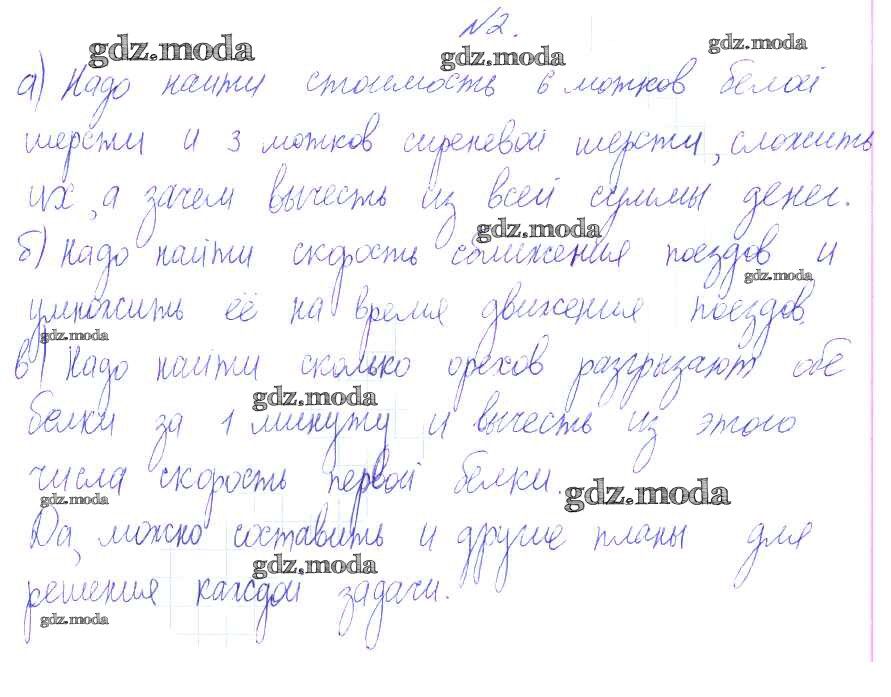 №2.
gdz.moda gdz.moda gdz.moda
а) Надо найти стоимость 6 мотков белой
шерсти и 3 мотков сиреневой шерсти, сложить
их, а зачем вычесть из всей суммы денег.
gdz.moda
б) Надо найти скорость сближения поездов и
gdz.moda
умножить её на время движения поездов.
gdz.moda
в) Надо найти сколько орехов разгрызают обе
gdz.moda
белки за 1 минуту и вычесть из этого
числа скорость первой белки.
gdz.moda gdz.moda
Да, можно составить и другие планы для
gdz.moda
решения каждой задачи.
gdz.moda